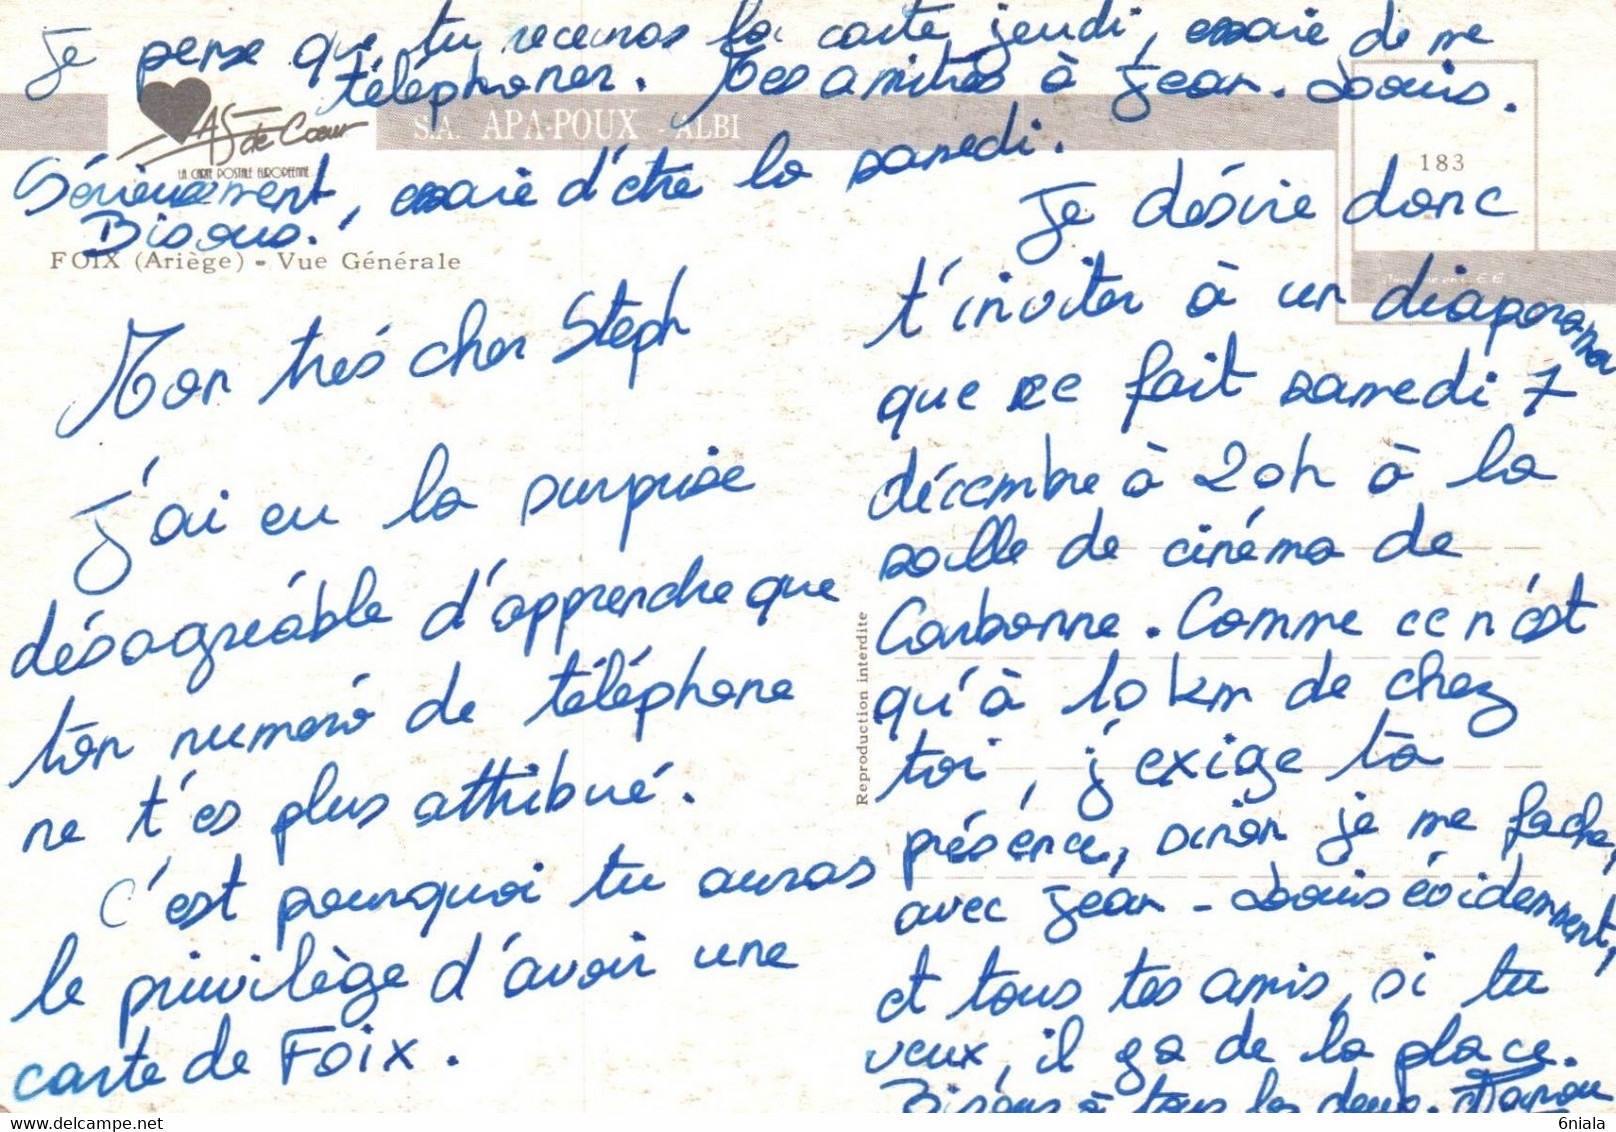 Je pense que tu recevras la carte jeudi, essaie de me
téléphoner. Mes amitiés à Jean-Louis.
AS de Cœur
S.A. APA-POUX - ALBI
LA CARTE POSTALE EUROPÉENNE
183
Sérieusement, essaie d'être là samedi.
Bisous.
FOIX (Ariège) - Vue Générale
Mon très cher Steph
J'ai eu la surprise
désagréable d'apprendre que
ton numéro de téléphone
ne t'es plus attribué.
C'est pourquoi tu auras
le privilège d'avoir une
carte de FOIX.
Reproduction interdite
Je désire donc
t'inviter à un diaporama
que se fait samedi 7
décembre à 20h à la
salle de cinéma de
Carbonne. Comme ce n'est
qu'à 10 km de chez
toi, j'exige ta
présence, sinon je me fache,
avec Jean-Louis évidemment,
et tous tes amis, si tu
veux, il y a de la place.
Bisous à tous les deux.
6niala